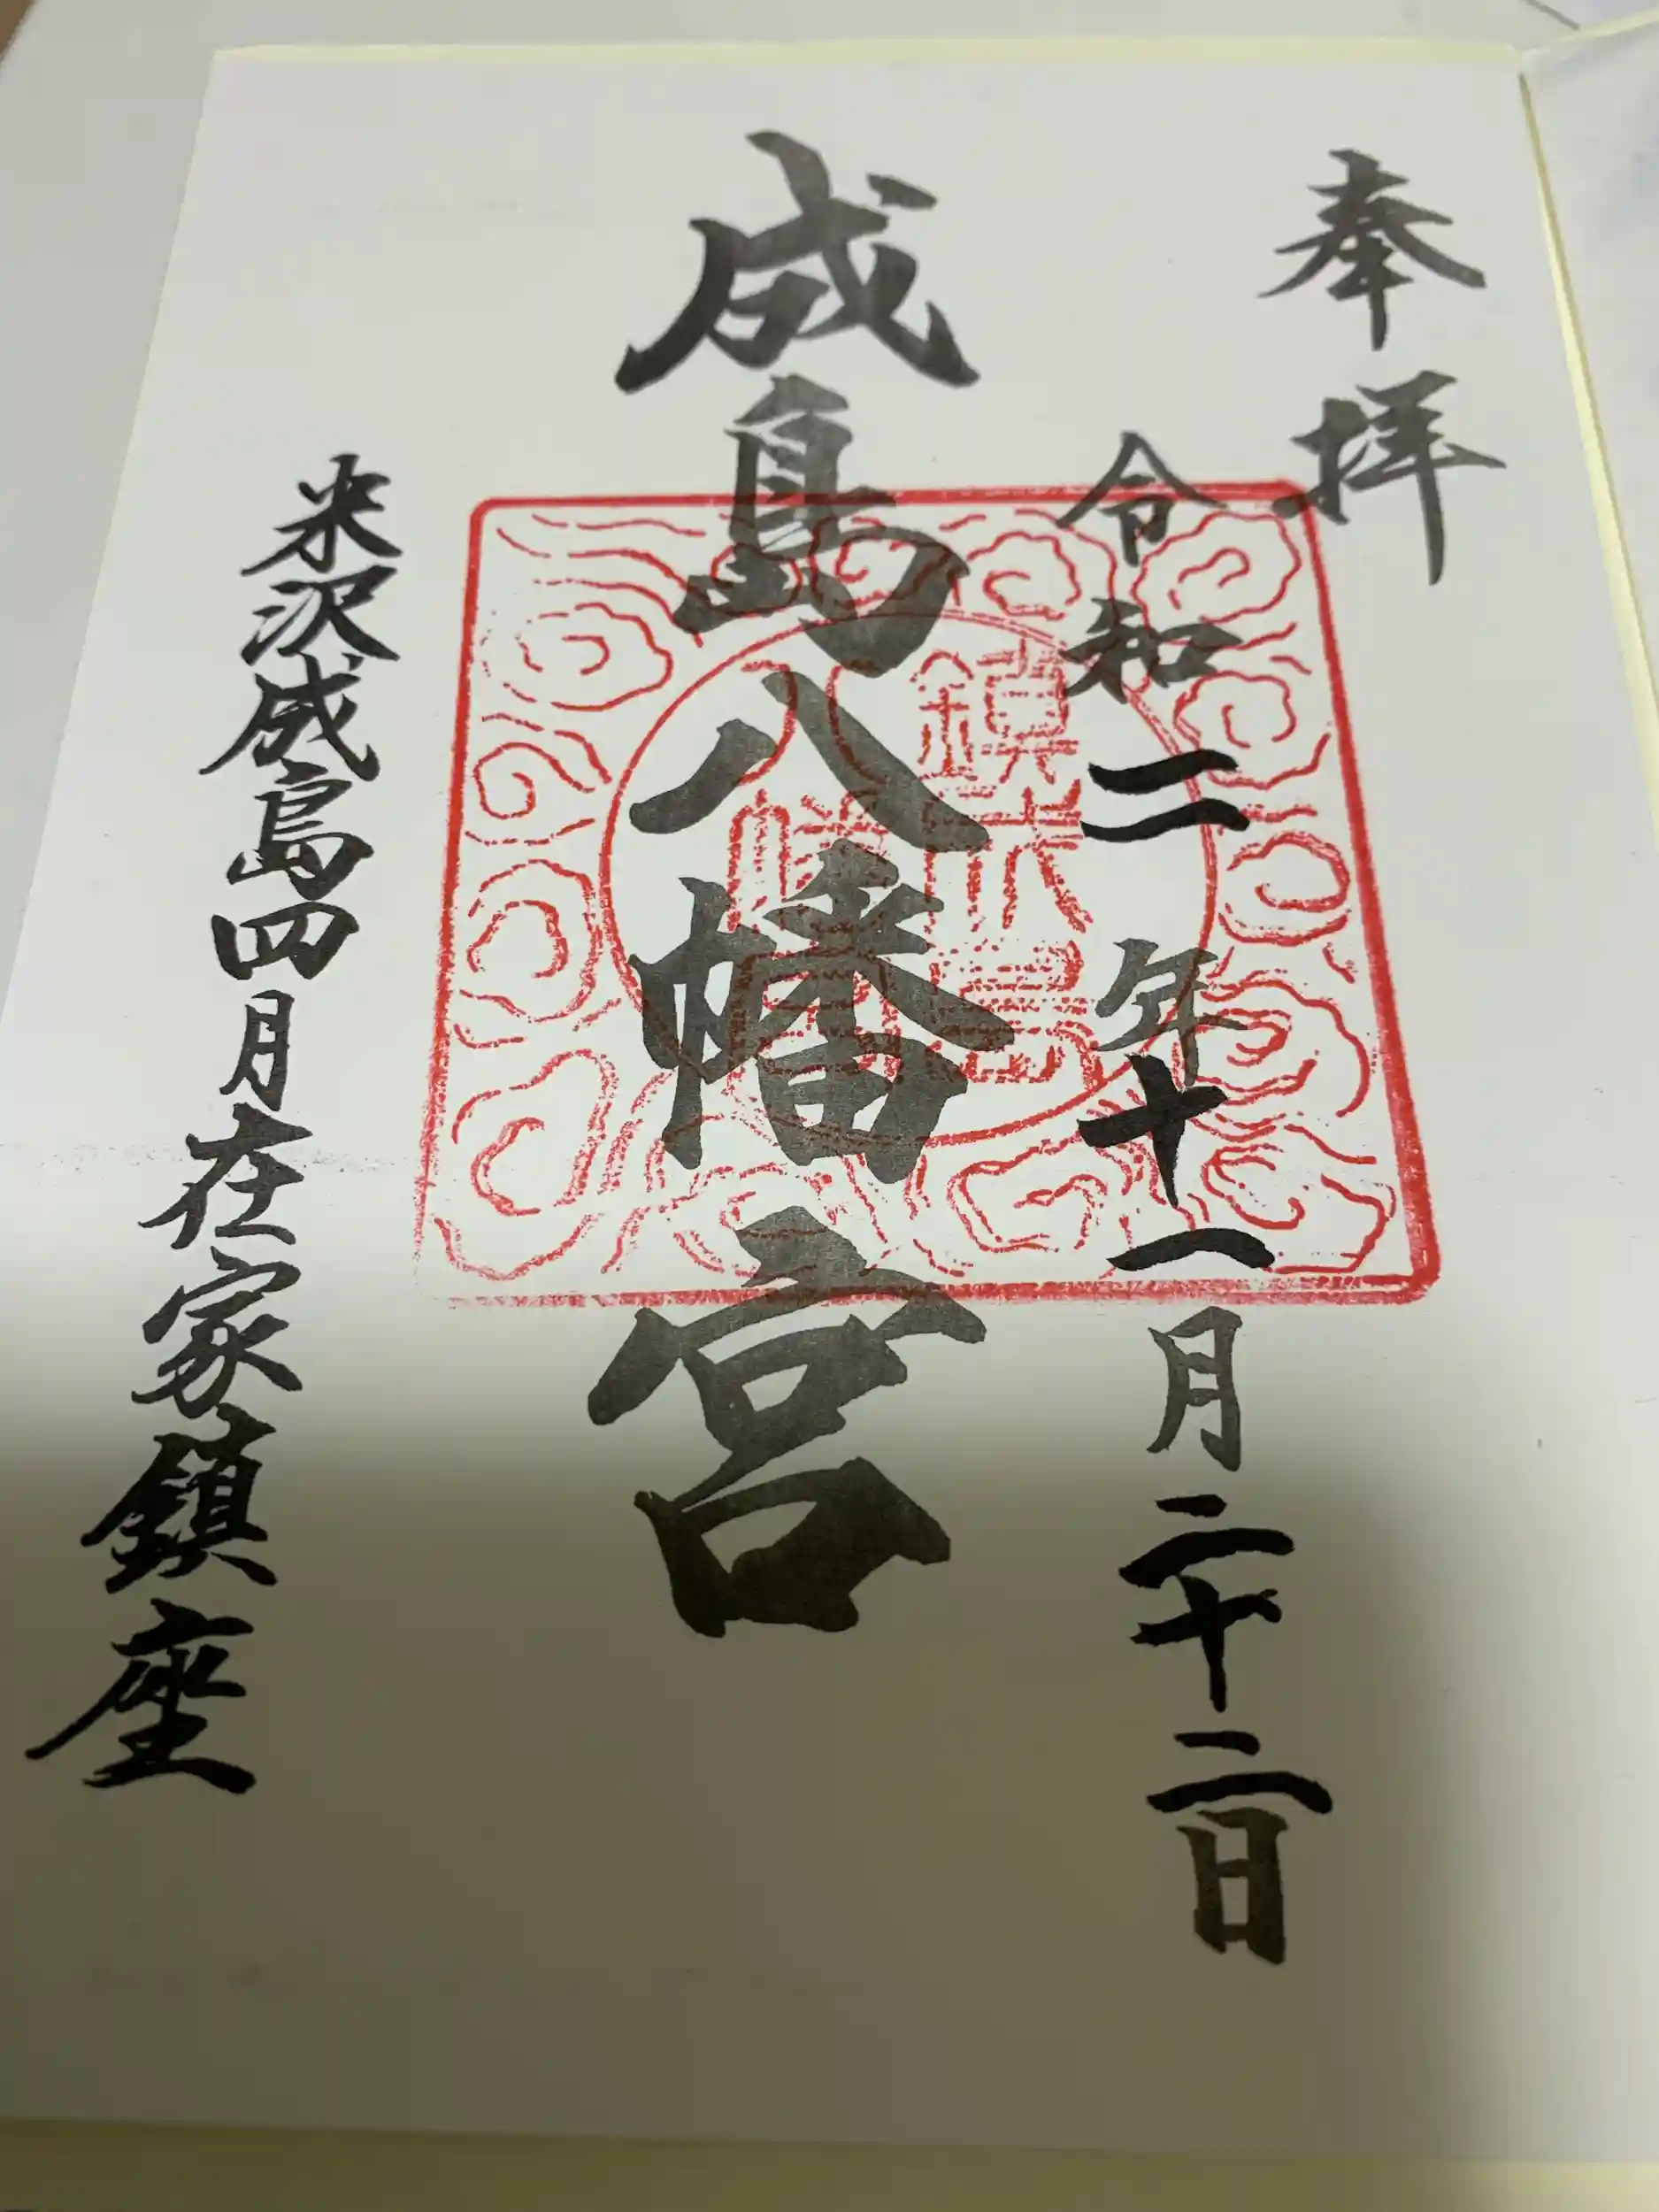 奉拝
令和二年十一月二十二日
成島八幡宮
米沢成島四月在家鎮座